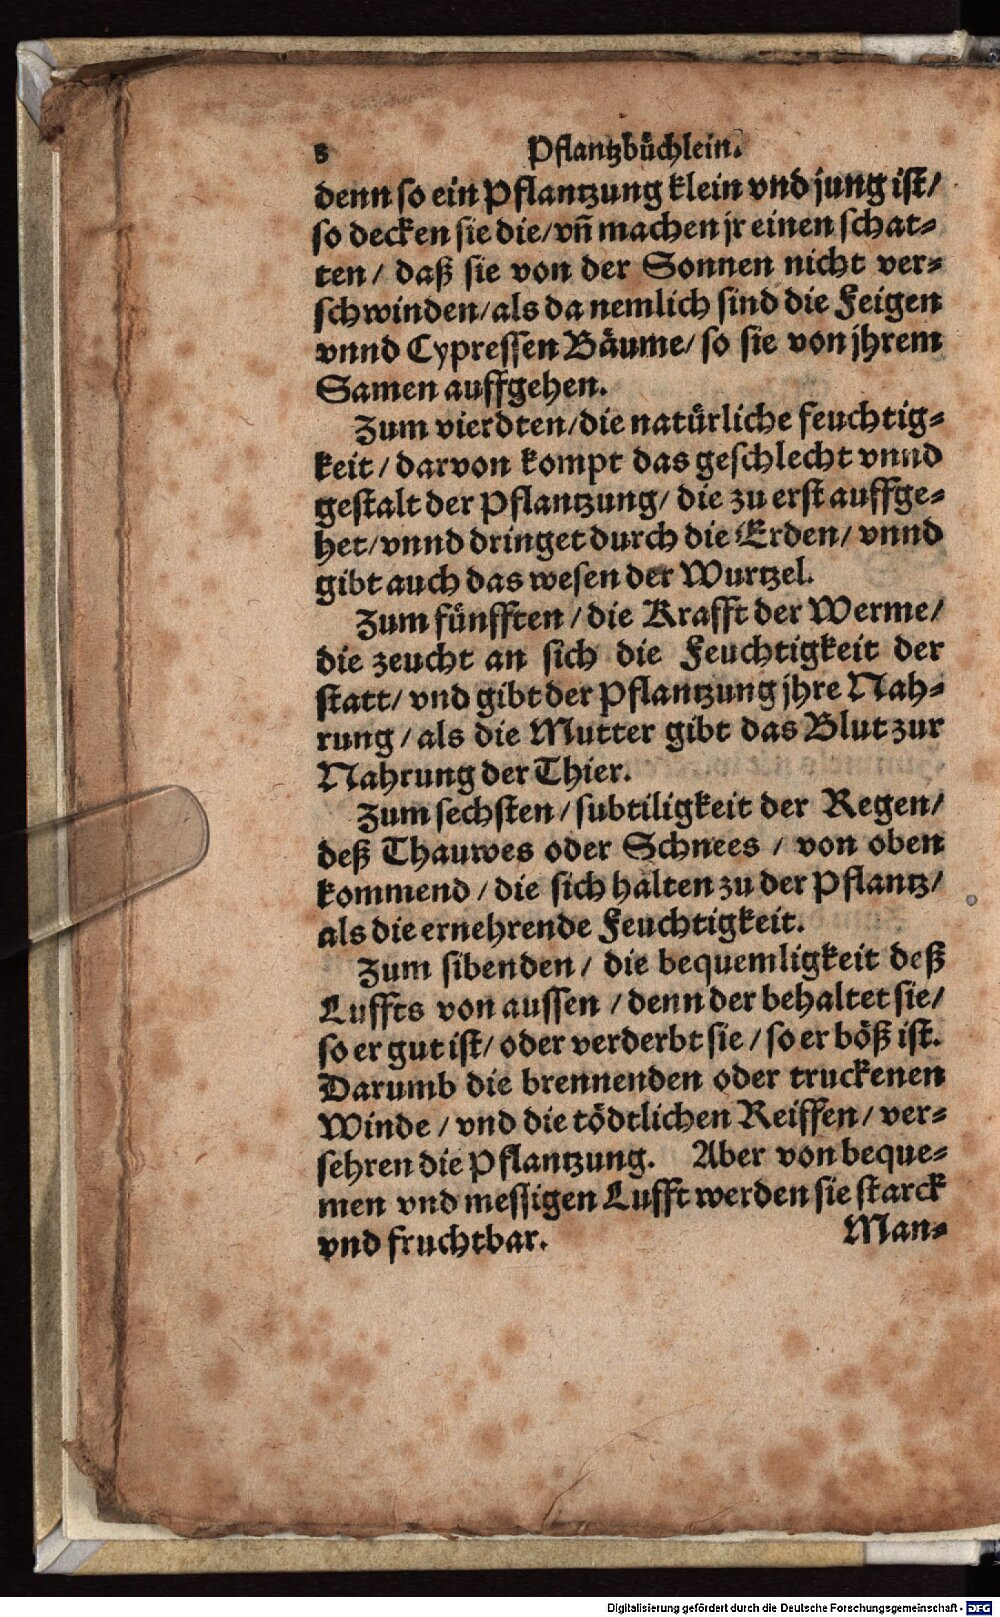 8 Pflantzbüchlein.
denn so ein Pflantzung klein vnd jung ist/
so decken sie die/ vñ machen jr einen schat-
ten/ daß sie von der Sonnen nicht ver-
schwinden/ als da nemlich sind die Feigen
vnnd Cypressen Bäume/ so sie von jhrem
Samen auffgehen.
Zum vierdten/ die natürliche feuchtig-
keit/ darvon kompt das geschlecht vnnd
gestalt der Pflantzung/ die zu erst auffge-
het/ vnnd dringet durch die Erden/ vnnd
gibt auch das wesen der Wurtzel.
Zum fünfften/ die Krafft der Werme/
die zeucht an sich die Feuchtigkeit der
statt/ vnd gibt der Pflantzung jhre Nah-
rung/ als die Mutter gibt das Blut zur
Nahrung der Thier.
Zum sechsten/ subtiligkeit der Regen/
deß Thauwes oder Schnees/ von oben
kommend/ die sich halten zu der Pflantz/
als die ernehrende Feuchtigkeit.
Zum sibenden/ die bequemligkeit deß
Luffts von aussen/ denn der behaltet sie/
so er gut ist/ oder verderbt sie/ so er böß ist.
Darumb die brennenden oder truckenen
Winde/ vnd die tödtlichen Reiffen/ ver-
sehren die Pflantzung. Aber von beque-
men vnd messigen Lufft werden sie starck
vnd fruchtbar. Man-
Digitalisierung gefördert durch die Deutsche Forschungsgemeinschaft - DFG